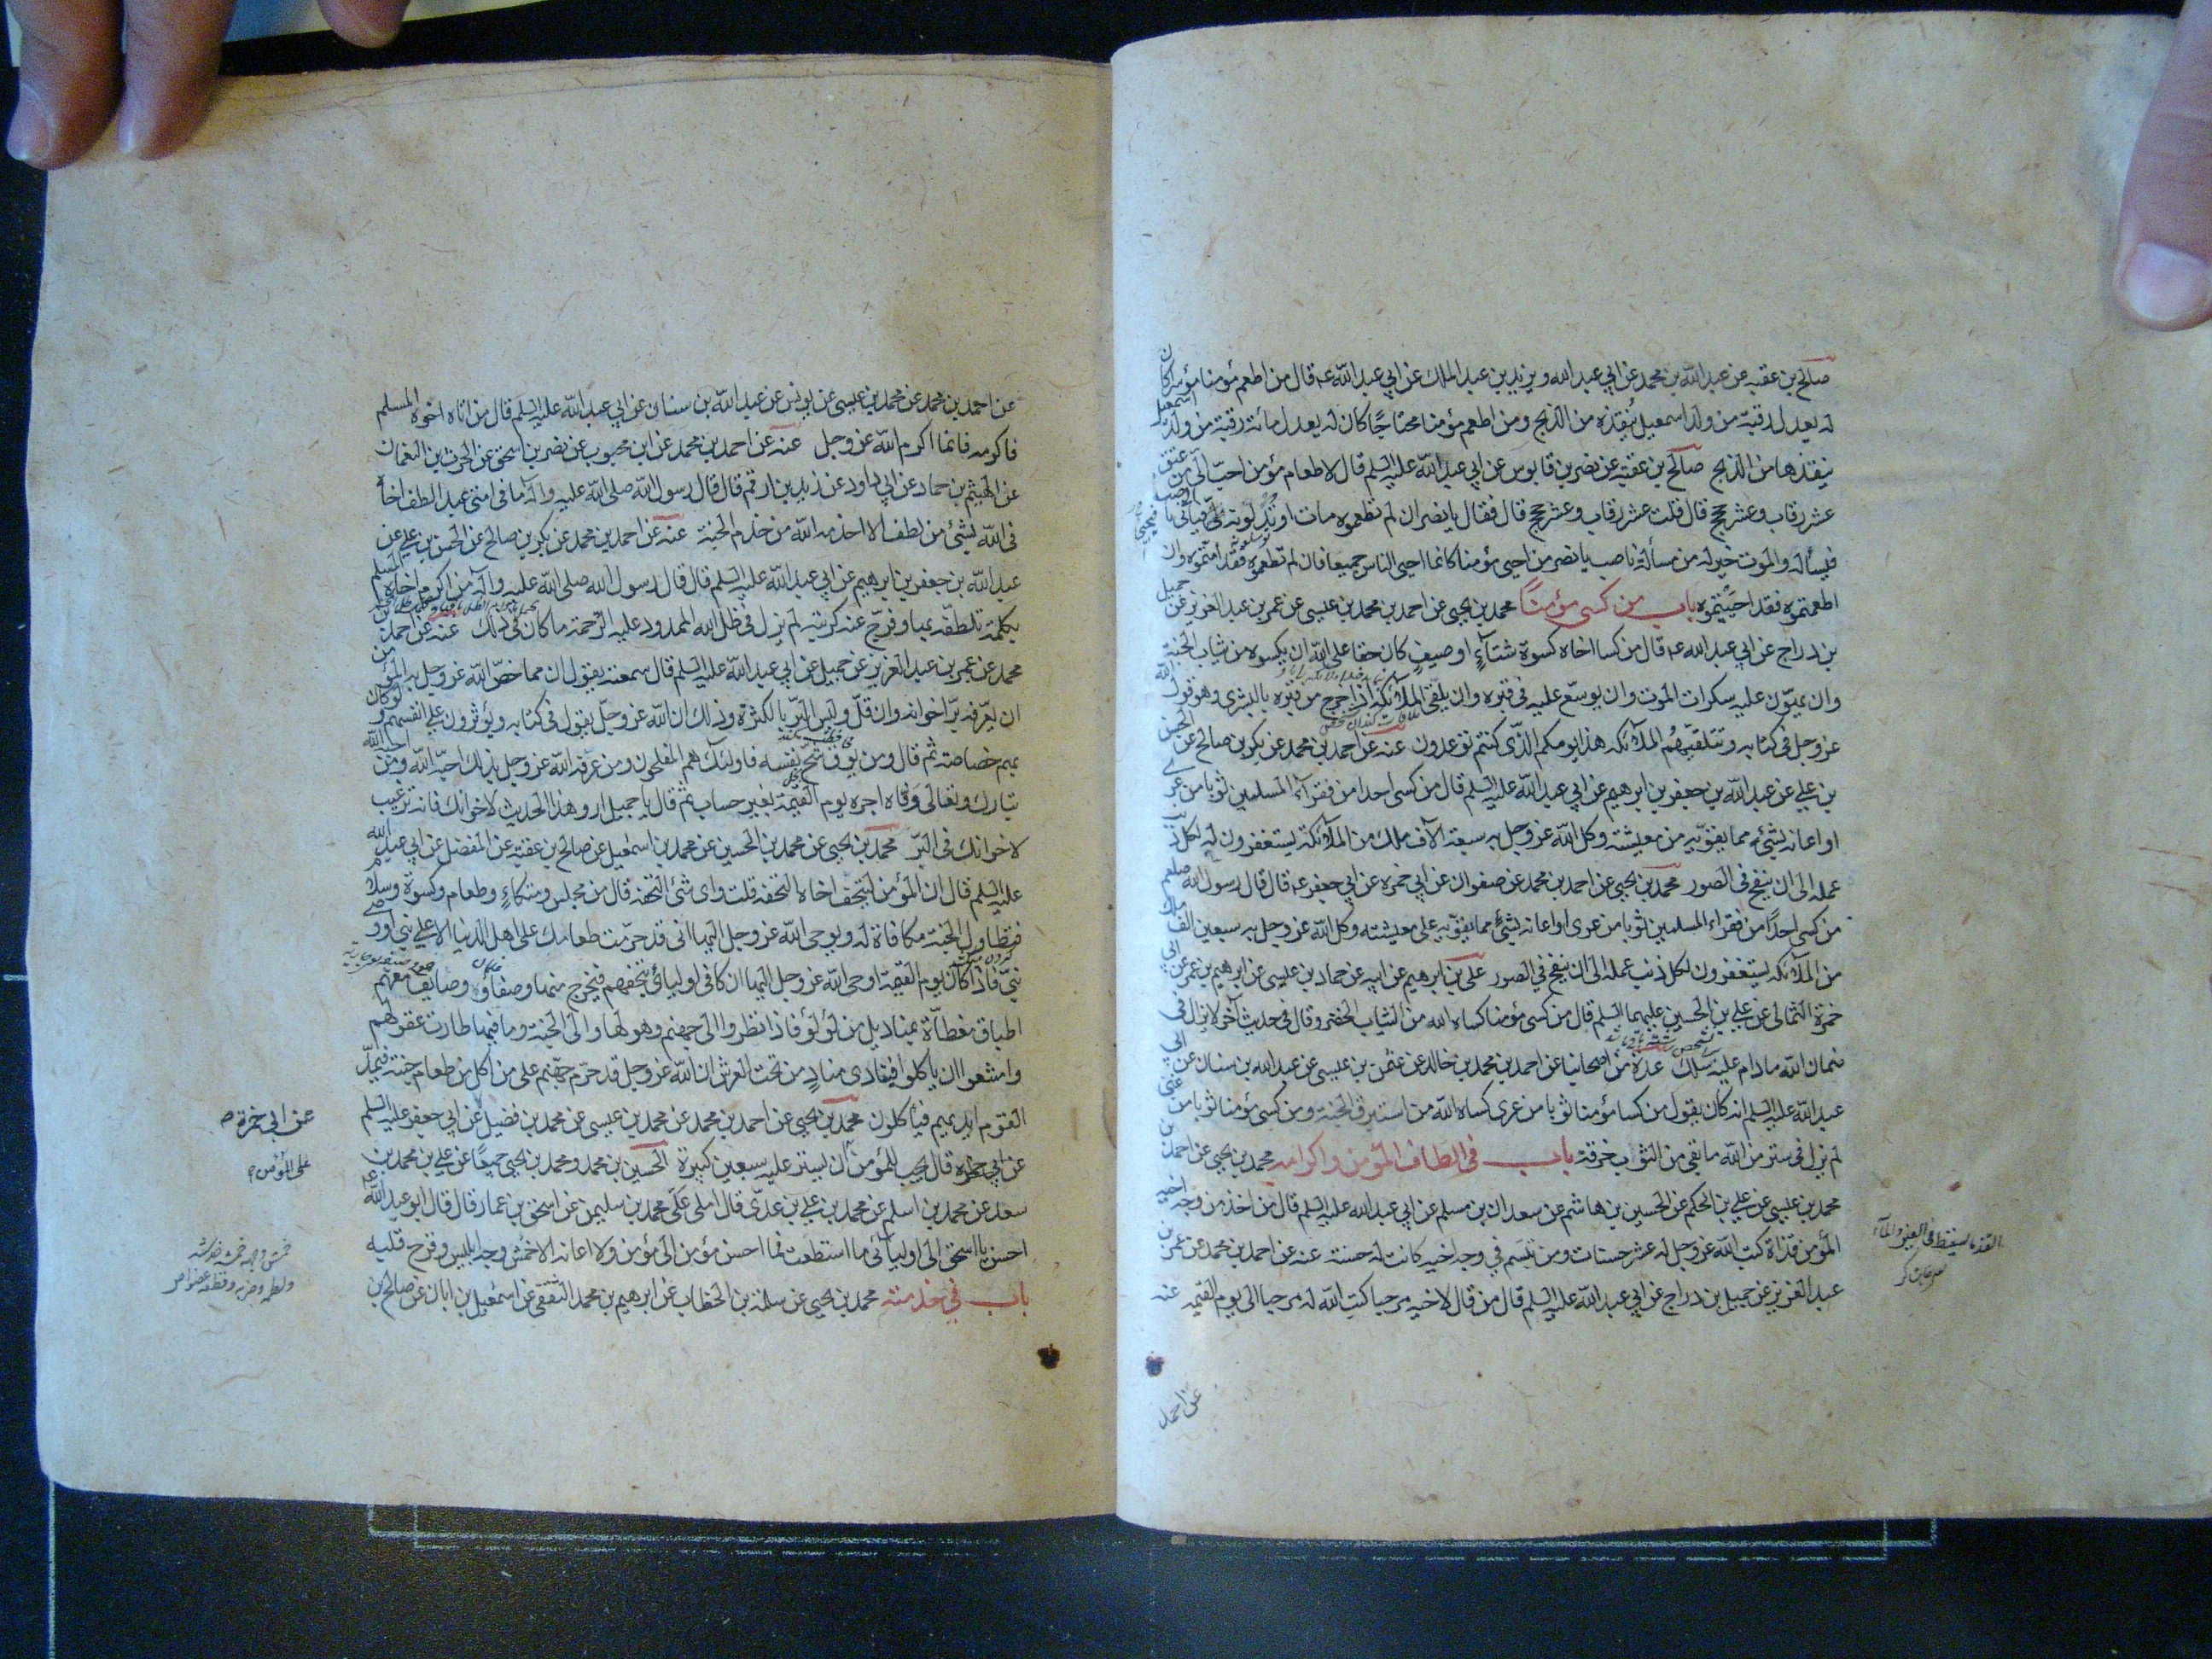 صالح بن عقبه عن عبد الله بن محمد عن ابي عبد الله ويزيد بن عبد الملك عن ابي عبد الله عه قال من اطعم مؤمنا مؤسرا كان
له يعدل رقبة من ولد اسمعيل يُنقذه من الذبح ومن اطعم مؤمنا محتاجًا كان له يعدل مائة رقبة من ولد اسمعيل
ينقذها من الذبح صالح بن عقبة عن نضر بن قابوس عن ابي عبد الله عليه السلم قال لاطعام مؤمن احبّ الي من عتق
عشر رقاب وعشر حجج قال قلت عشر رقاب وعشر حجج قال فقال يا نضر ان لم تطعموه مات او تدلونه
فيسأله والموت خير له من مسألة ناصب يا نضر من احيى مؤمنا كانما احيى الناس جميعا فان لم تطعموه فقد امتّموه وان
اطعمتموه فقد احييتموه باب من كسى مؤمنًا محمد بن يحيى عن احمد بن محمد بن عيسى عن عمر بن عبد العزيز عن جميل
بن دراج عن ابي عبد الله عه قال من كسا اخاه كسوة شتاءٍ او صيف كان حقا على الله ان يكسوه من ثياب الجنة
وان يهوّن عليه سكرات الموت وان يوسّع عليه في قبره وان يلقى الملائكة اذا خرج من قبره بالبشرى وهو قول الله
عز وجل في كتابه وتتلقيهُم الملائكة هذا يومكم الذي كنتم توعدون عنه عن احمد بن محمد عن بكر بن صالح عن الحسن
بن علي عن عبد الله بن جعفر بن ابرهيم عن ابي عبد الله عليه السلم قال من كسى احدا من فقراء المسلمين ثوبا من عرى
او اعانه بشئ مما يقوّيه من معيشته وكل الله عز وجل به سبعة الاف ملك من الملائكة يستغفرون له لكل ذنب
عمله الى ان ينفخ في الصور محمد بن يحيى عن احمد بن محمد عن صفوان عن ابي حمزه عن ابي جعفر عه قال قال رسول الله صلعم
من كسى احدًا من فقراء المسلمين ثوبا من عرى او اعانه بشئ مما يقوّيه على معيشته وكل الله عز وجل به سبعين الف ملك
من الملائكه يستغفرون لكل ذنب عمله الى ان ينفخ في الصور علي بن ابرهيم عن ابيه عن حماد بن عيسى عن ابرهيم بن عمر عن ابي
حمزة الثمالي عن علي بن الحسين عليهما السلم قال من كسى مؤمنا كساه الله من الثياب الخضر وقال في حديث آخر لا يزال في
ضمان الله مادام عليه سلك عدة من اصحابنا عن احمد بن محمد بن خالد عن عثمن بن عيسى عن عبد الله بن سنان عن ابي
عبد الله عليه السلم انه كان يقول من كسا مؤمنا ثوبا من عرى كساه الله من استبرق الجنة ومن كسى مؤمنا ثوبا من غنى
لم يزل في ستر من الله ما بقي من الثوب خرقة باب في الطاف المؤمن واكرامه محمد بن يحيى عن احمد بن
محمد بن عيسى عن علي بن الحكم عن الحسين بن هاشم عن سعدان بن مسلم عن ابي عبد الله عليه السلم قال من اخذ من وجه اخيه
المؤمن قذاة كتب الله عز وجل له عشر حسنات ومن تبسّم في وجه اخيه كانت له حسنة عنه عن احمد بن محمد عن عمر بن
عبد العزيز عن جميل بن دراج عن ابي عبد الله عليه السلم قال من قال لاخيه مرحبا كتب الله له مرحبا الى يوم القيمه عنه
عن احمد
عن احمد بن محمد عن محمد بن عيسى عن يونس عن عبد الله بن سنان عن ابي عبد الله عليه السلم قال من اتاه اخوه المسلم
فاكرمه فانما اكرم الله عز وجل عنه عن احمد بن محمد عن ابن محبوب عن نضر بن اسحق عن الحرث بن النعمان
عن الهيثم بن حماد عن ابي داود عن زيد بن ارقم قال قال رسول الله صلى الله عليه وآله ما في امتي عبد الطف اخاً
في الله بشئ من لطف الا اخدمه الله من خدم الجنة عنه عن احمد بن محمد عن بكر بن صالح عن الحسن بن علي عن
عبد الله بن جعفر بن ابرهيم عن ابي عبد الله عليه السلم قال قال رسول الله صلى الله عليه وآله من اكرم اخاه المسلم
بكلمة تلطفه بها وفرّج عنه كربته لم يزل في ظل الله الممدود عليه الرحمة ما كان في ذلك عنه عن احمد بن
محمد عن عمر بن عبد العزيز عن جميل عن ابي عبد الله عليه السلم قال سمعته يقول ان مما خصّ الله عز وجل به المؤمن
ان يعرّفه برّ اخوانه وان قلّ وليس البرّ بالكثرة وذلك ان الله عز وجل يقول في كتابه ويؤثرون على انفسهم ولو كان
بهم خصاصة ثم قال ومن يوق شحّ نفسه فاولئك هم المفلحون ومن عرّفه الله عز وجل بذلك احبّه الله ومن احبه الله
تبارك وتعالى وفّاه اجره يوم القيمة بغير حساب ثم قال يا جميل ارو هذا الحديث لاخوانك فانه ترغيب
لاخوانك في البرّ محمد بن يحيى عن محمد بن الحسين عن محمد بن اسمعيل عن صالح بن عقبة عن المفضل عن ابي عبد الله
عليه السلم قال ان المؤمن ليتحف اخاه التحفه قلت واى شئ التحفه قال من مجلس ومتكاءٍ وطعام وكسوة وسلام
فتطاول الجنة مكافاة له ويوحى الله عز وجل اليها انى قد حرّمت طعامك على اهل الدنيا الا على نبي او وصى
نبيّ فاذا كان يوم القيمة اوحى الله عز وجل اليها ان كافى اوليائى بتحفهم فيخرج منها وصفاء وصايف معهم
اطباق مغطاة بمناديل من لؤلؤ فاذا نظروا الى جهنم وهولها والى الجنة وما فيها طارت عقولهم
وامتنعوا ان ياكلوا فينادى منادٍ من تحت العرش ان الله عز وجل قد حرّم جهنم على من اكل من طعام جنته فيمدّ
القوم ايديهم فياكلون محمد بن يحيى عن احمد بن محمد عن محمد بن عيسى عن محمد بن فضيل عن ابي جعفر عليه السلم
عن ابي حمزه قال يجب للمؤمن ان يستر عليه سبعين كبيرة الحسين بن محمد ومحمد بن يحيى جميعًا عن علي بن محمد بن
سعد عن محمد بن اسلم عن محمد بن علي بن عدي قال املى علَيّ محمد بن سليمن عن اسحق بن عمار قال قال ابو عبد الله عه
احسن يا اسحق الى اوليائى ما استطعت فما احسن مؤمن الى مؤمن ولا اعانه الا خمش وجه ابليس وقرح قلبه
باب في خدمته محمد بن يحيى عن سلمة بن الخطاب عن ابرهيم بن محمد الثقفي عن اسمعيل بن ابان عن صالح بن
عن ابي حمزة
على المؤمن